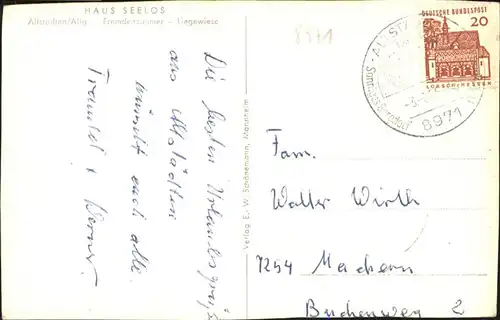 HAUS SEELOS
Altstädten/Allg. Fremdenzimmer - Liegewiese
8971
Die besten Urlaubsgrüße
aus Altstädten
wünscht euch alle
Trautel + Werner
Verlag E. W. Schönemann, Mannheim
DEUTSCHE BUNDESPOST
20
LORSCH/HESSEN
8971
Fam.
Walter Wirth
7254 Machern
Buchenweg 2